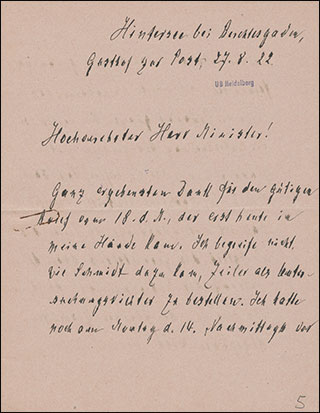 Hintersee bei Berchtesgaden,
Gasthof zur Post, 27. 8. 22
UB Heidelberg
Hochverehrter Herr Minister!
Ganz ergebensten Dank für den gütigen
Brief vom 18. d. M., der erst heute in
meine Hände kam. Ich begreife nicht,
wie Schmidt dazu kam, Zeiler als Unter-
suchungsrichter zu bestellen. Ich hatte
noch am Montag d. 14. Nachmittags vor
5